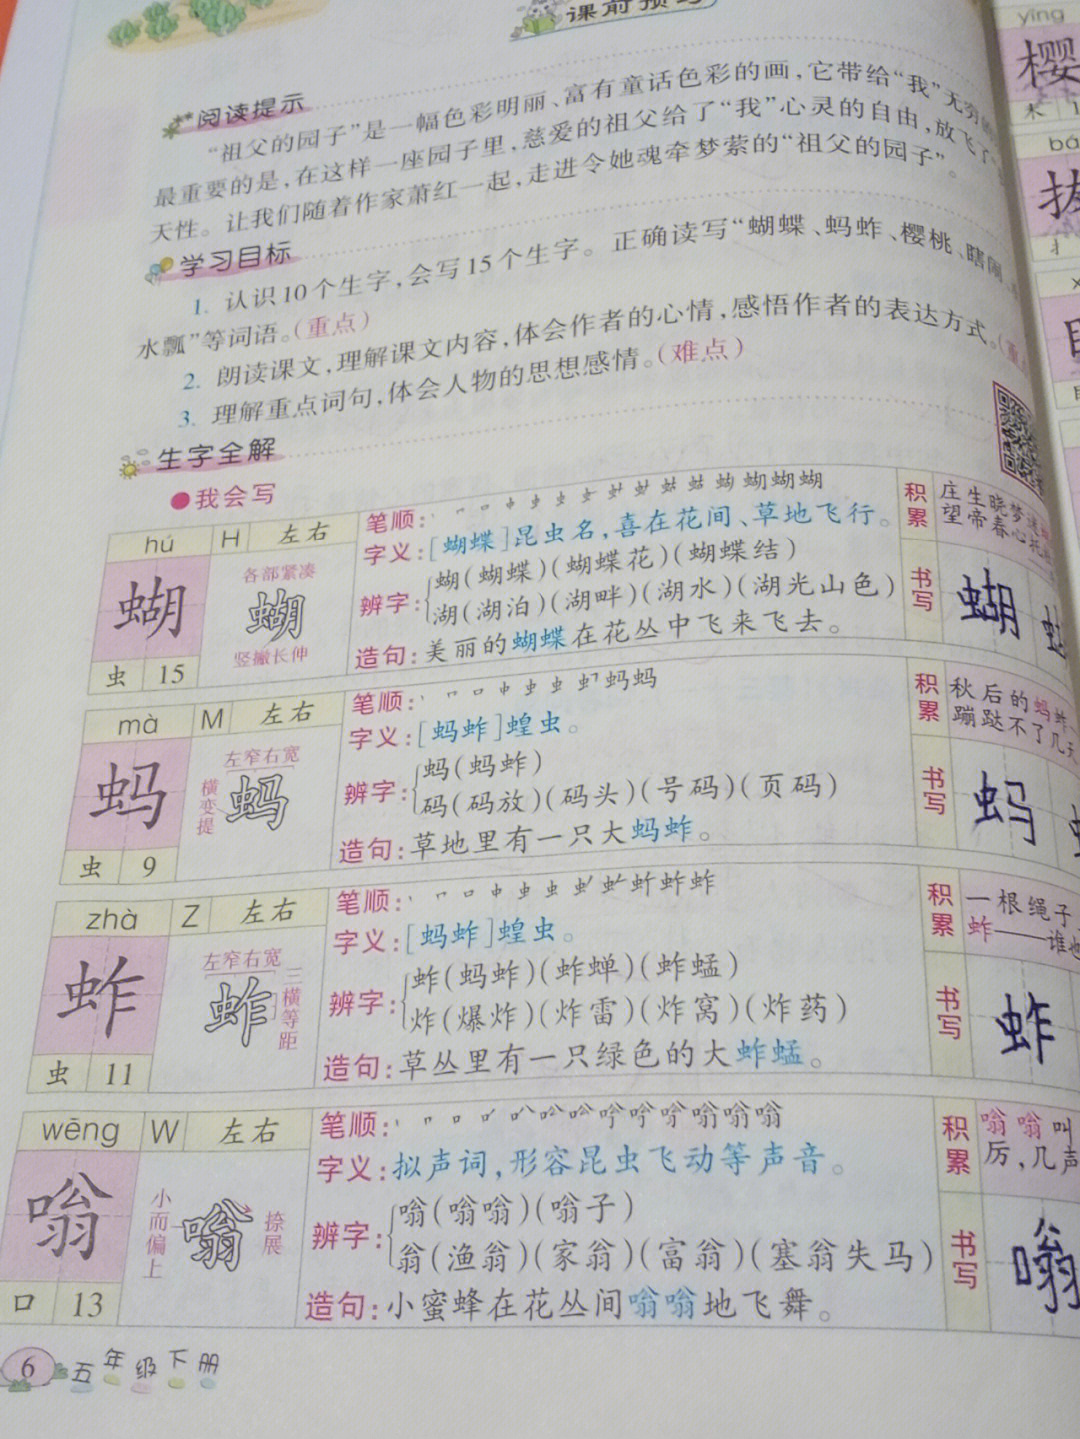 课前预习
阅读提示
“祖父的园子”是一幅色彩明丽、富有童话色彩的画，它带给“我”无穷的
最重要的是，在这样一座园子里，慈爱的祖父给了“我”心灵的自由，放飞了
天性。让我们随着作家萧红一起，走进令她魂牵梦萦的“祖父的园子”。
学习目标
1. 认识10个生字，会写15个生字。正确读写“蝴蝶、蚂蚱、樱桃、瞎闹、
水瓢”等词语。(重点)
2. 朗读课文，理解课文内容，体会作者的心情，感悟作者的表达方式。(重
3. 理解重点词句，体会人物的思想感情。(难点)
生字全解
●我会写
hú H 左右
蝴
虫 15
各部紧凑
蝴
竖撇长伸
笔顺：
字义：[蝴蝶]昆虫名，喜在花间、草地飞行。
辨字：蝴(蝴蝶)(蝴蝶花)(蝴蝶结)
湖(湖泊)(湖畔)(湖水)(湖光山色)
造句：美丽的蝴蝶在花丛中飞来飞去。
积累 庄生晓梦迷
望帝春心托
书写 蝴
mà M 左右
蚂
虫 9
左窄右宽
横变提
蚂
笔顺：
字义：[蚂蚱]蝗虫。
辨字：蚂(蚂蚱)
码(码放)(码头)(号码)(页码)
造句：草地里有一只大蚂蚱。
积累 秋后的蚂蚱
蹦跶不了几天
书写 蚂
zhà Z 左右
蚱
虫 11
左窄右宽
三横等距
蚱
笔顺：
字义：[蚂蚱]蝗虫。
辨字：蚱(蚂蚱)(蚱蝉)(蚱蜢)
炸(爆炸)(炸雷)(炸窝)(炸药)
造句：草丛里有一只绿色的大蚱蜢。
积累 一根绳子
蚱——谁也
书写 蚱
wēng W 左右
嗡
口 13
小而偏上
嗡
捺展
笔顺：
字义：拟声词，形容昆虫飞动等声音。
辨字：嗡(嗡嗡)(嗡子)
翁(渔翁)(家翁)(富翁)(塞翁失马)
造句：小蜜蜂在花丛间嗡嗡地飞舞。
积累 嗡嗡叫
厉，几声
书写 嗡
6 五年级下册
yīng
樱
木
bá
拔
扌